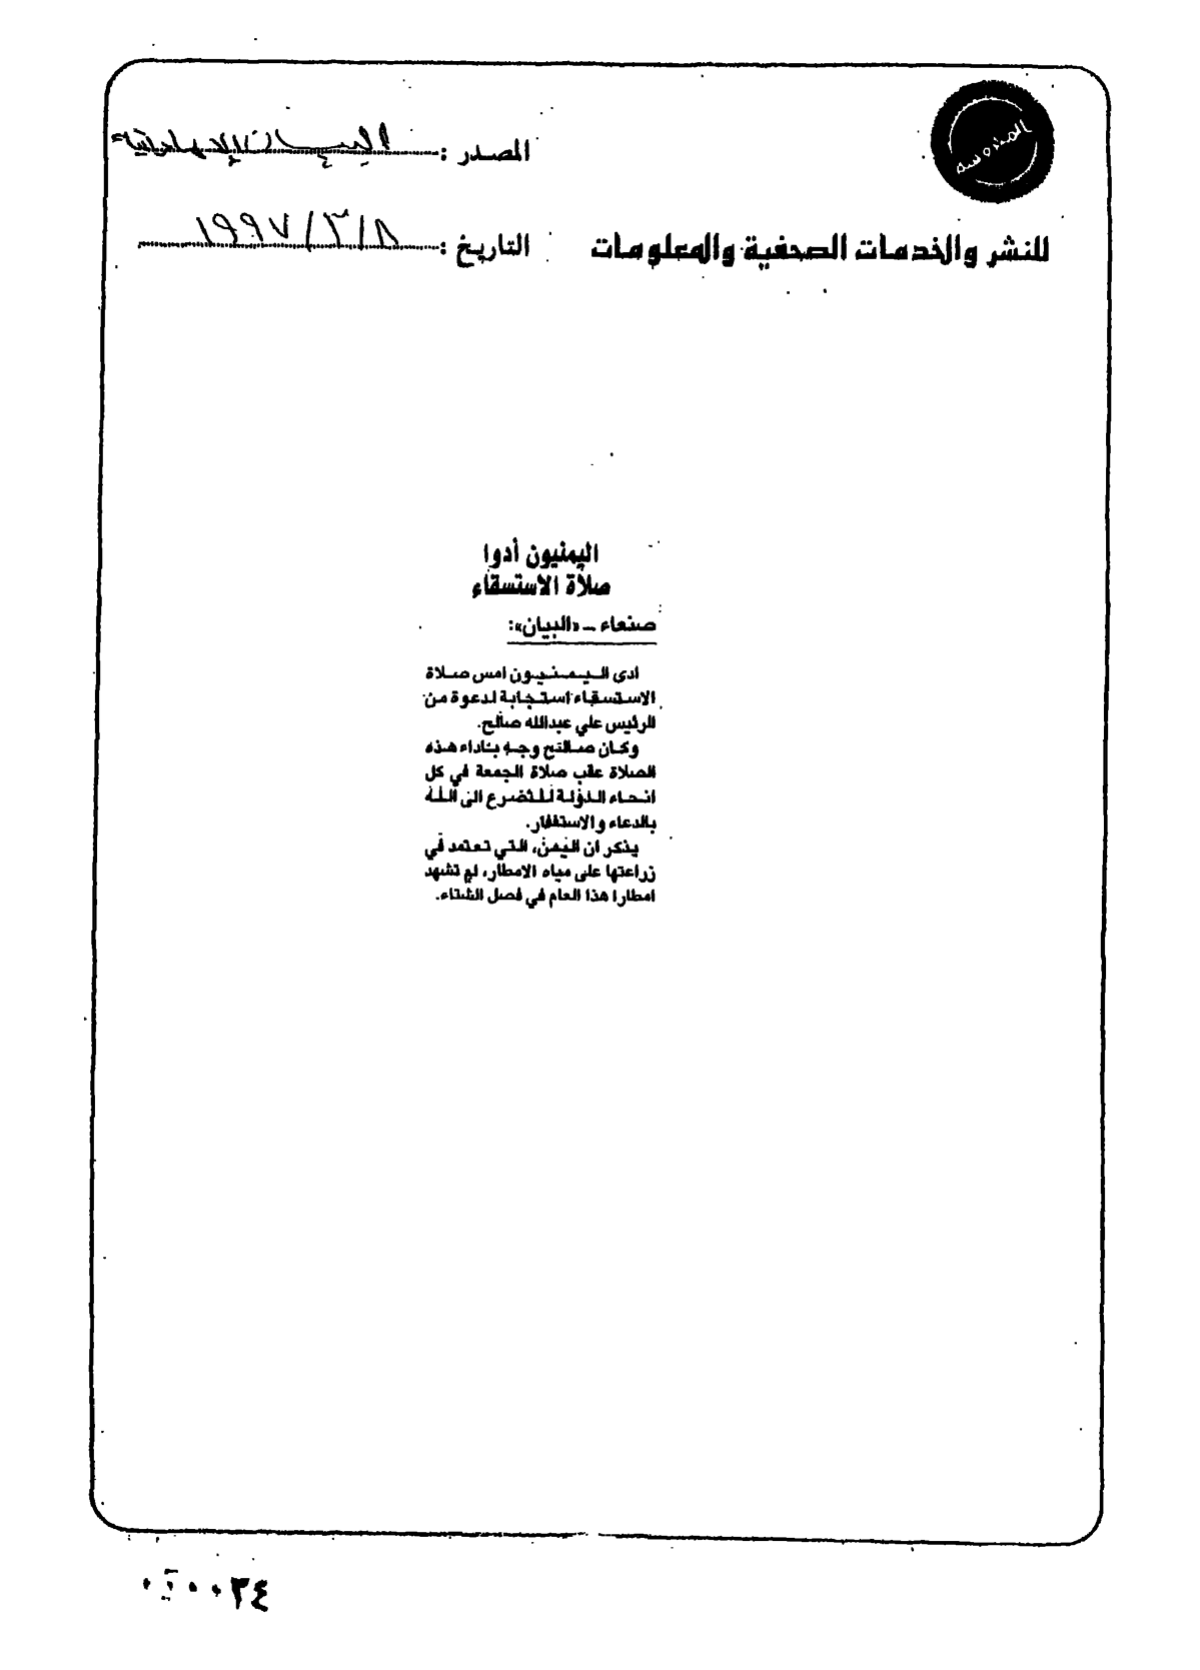 المصدر : البيان الإماراتية
للنشر والخدمات الصحفية والمعلومات
التاريخ : ١٩٩٧/٣/٨
اليمنيون أدوا
صلاة الاستسقاء
صنعاء ـ «البيان»:
ادى اليمنيون امس صلاة
الاستسقاء استجابة لدعوة من
الرئيس علي عبدالله صالح.
وكان صالح وجه بأداء هذه
الصلاة عقب صلاة الجمعة في كل
انحاء الدولة للتضرع الى الله
بالدعاء والاستغفار.
يذكر ان اليمن، التي تعتمد في
زراعتها على مياه الامطار، لم تشهد
امطارا هذا العام في فصل الشتاء.